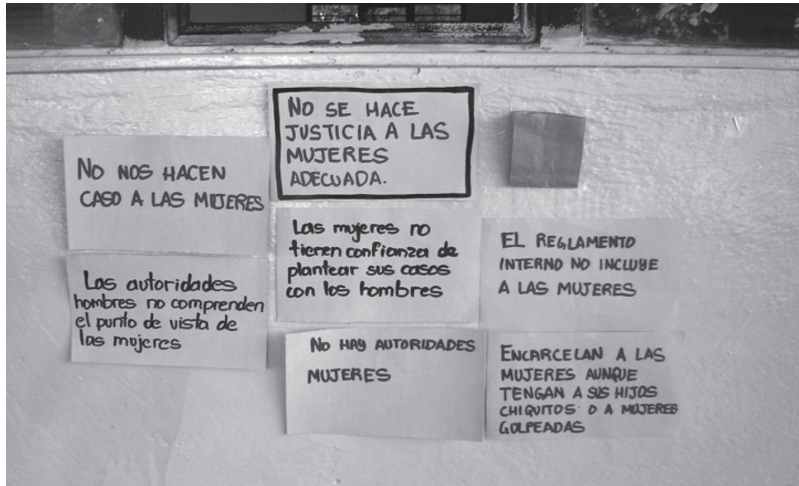 NO SE HACE
JUSTICIA A LAS
MUJERES
ADECUADA.
NO NOS HACEN
CASO A LAS MUJERES
Las autoridades
hombres no comprenden
el punto de vista de
las mujeres
Las mujeres no
tienen confianza de
plantear sus casos
con los hombres
NO HAY AUTORIDADES
MUJERES
EL REGLAMENTO
INTERNO NO INCLUYE
A LAS MUJERES
ENCARCELAN A LAS
MUJERES AUNQUE
TENGAN A SUS HIJOS
CHIQUITOS O A MUJERES
GOLPEADAS